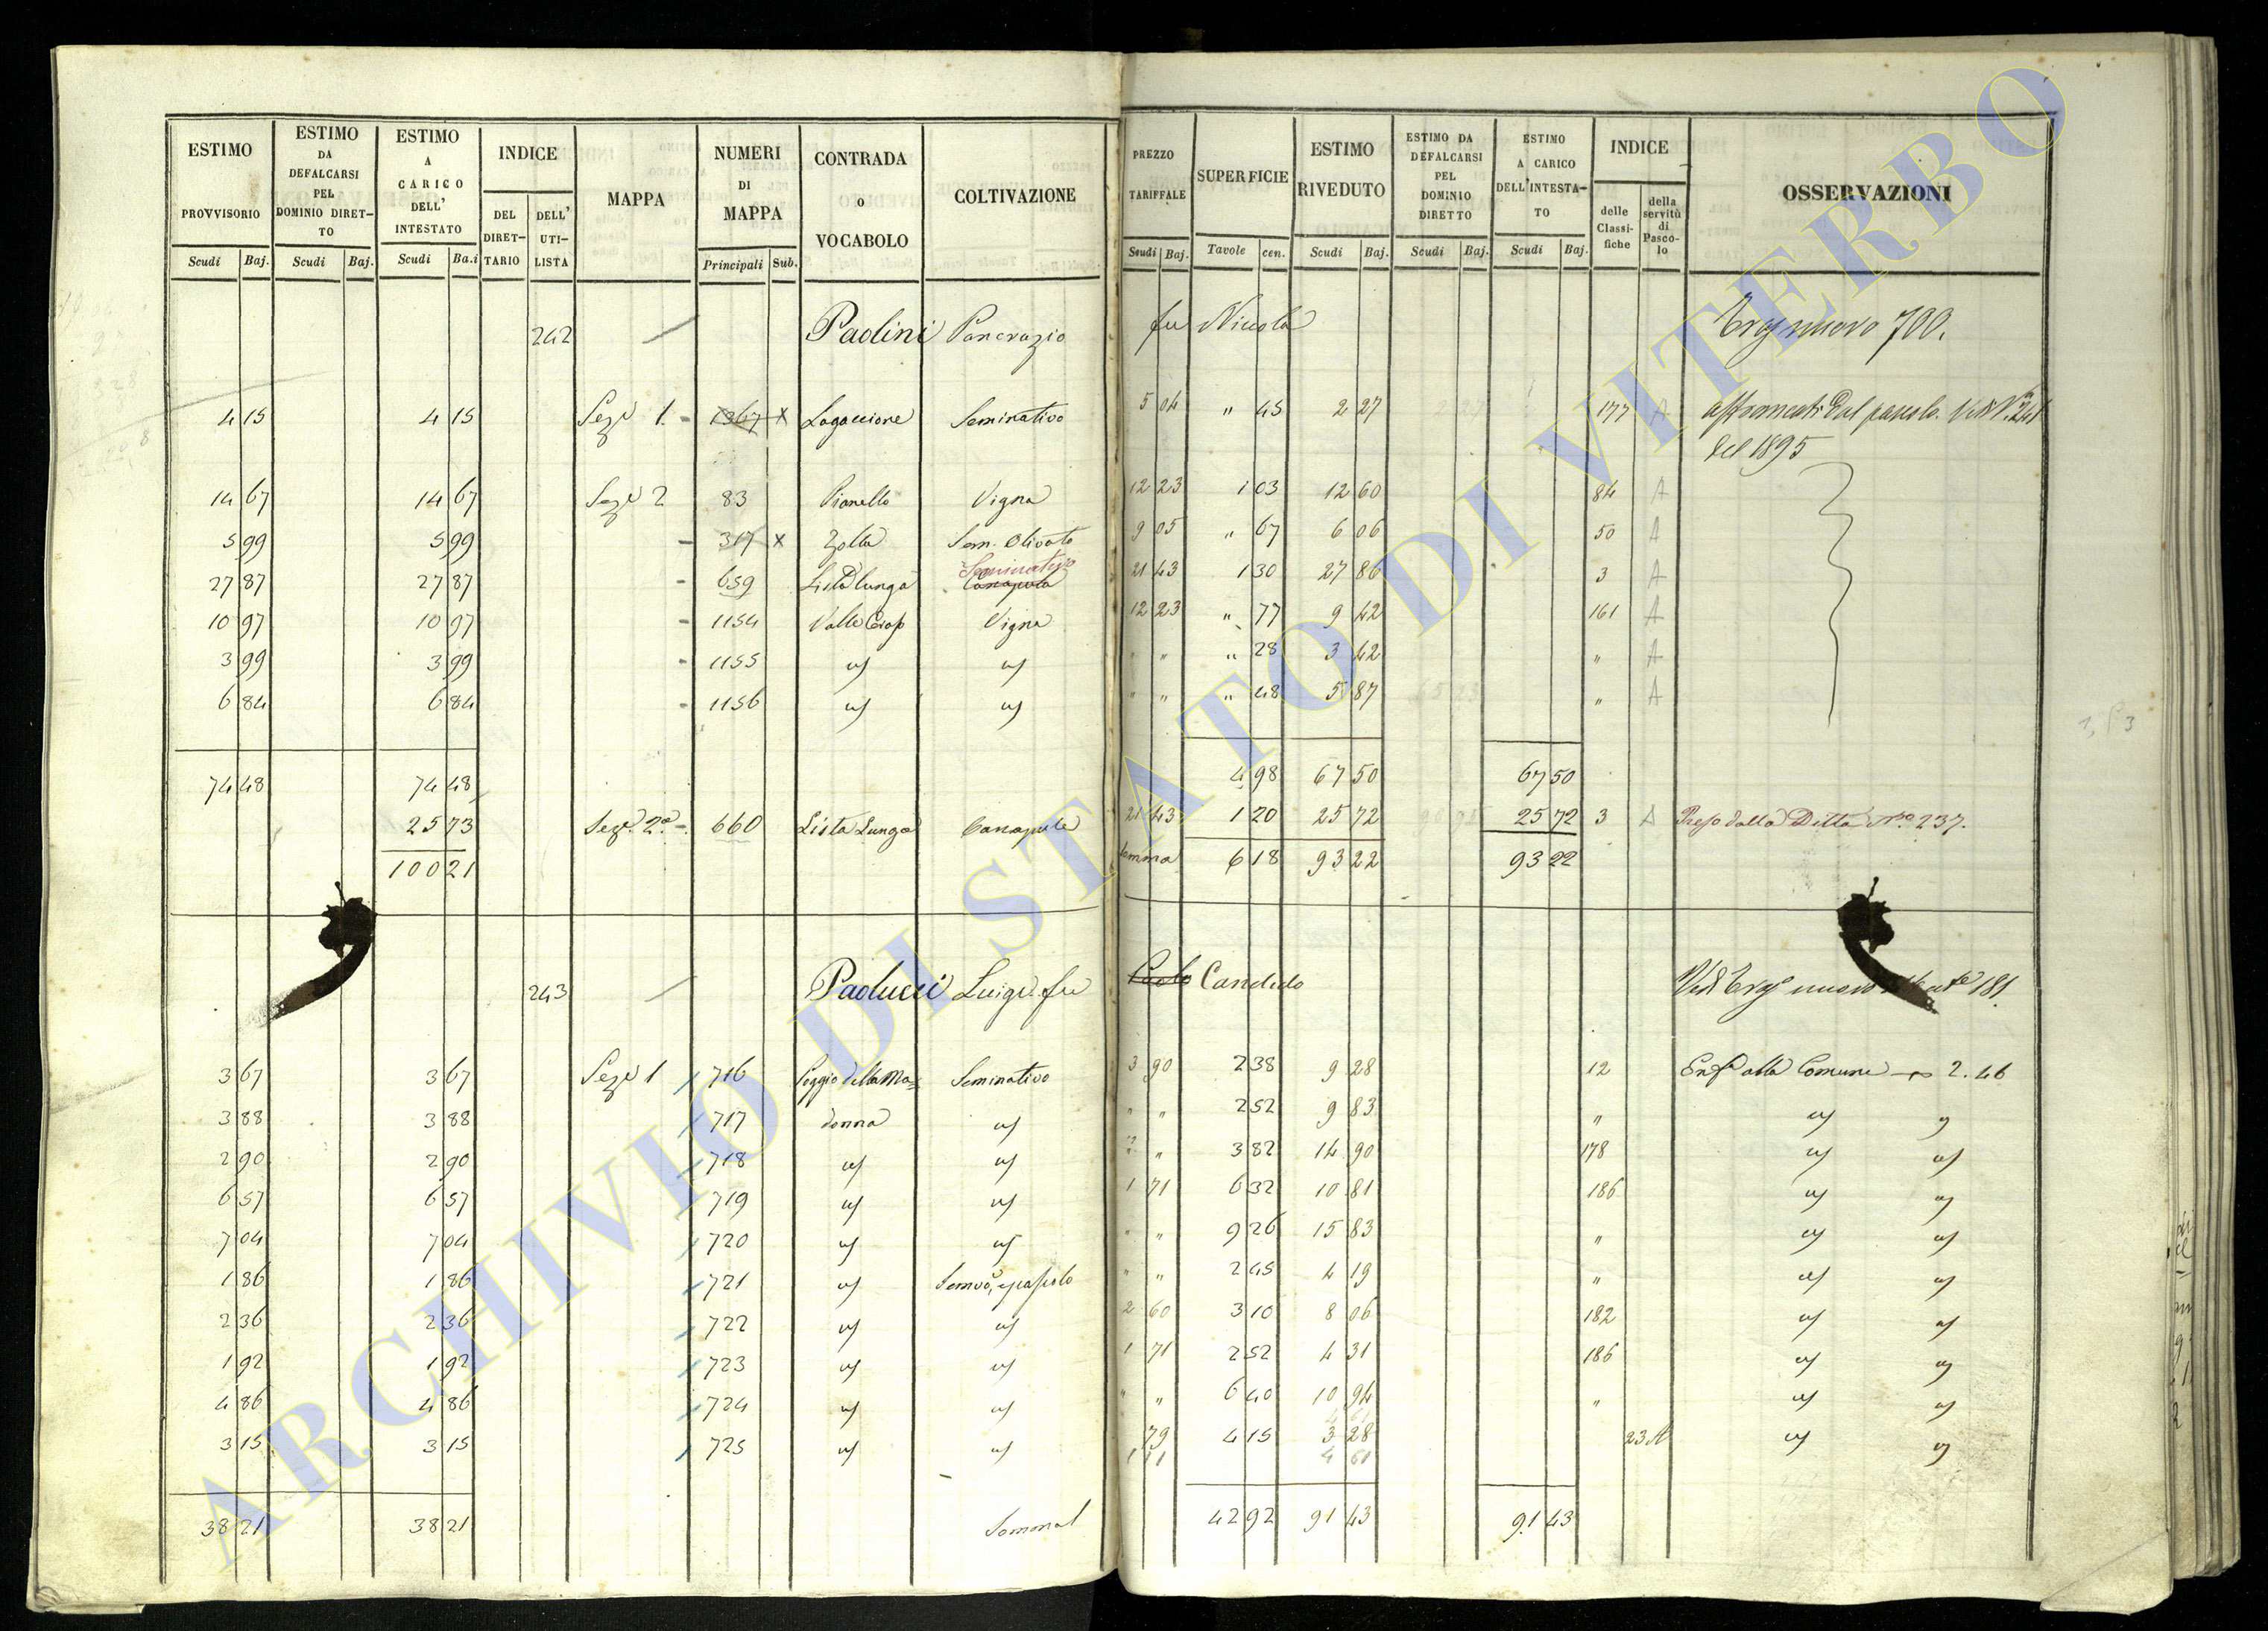 ESTIMO PROVVISORIO Scudi Baj.
ESTIMO DA DEFALCARSI PEL DOMINIO DIRET- TO Scudi Baj.
ESTIMO A CARICO DELL' INTESTATO Scudi Ba.i
INDICE DEL DIRET- TARIO DELL' UTI- LISTA
MAPPA
NUMERI DI MAPPA Principali Sub.
CONTRADA o VOCABOLO
COLTIVAZIONE
PREZZO TARIFFALE Scudi Baj.
SUPERFICIE Tavole cen.
ESTIMO RIVEDUTO Scudi Baj.
ESTIMO DA DEFALCARSI PEL DOMINIO DIRETTO Scudi Baj.
ESTIMO A CARICO DELL'INTESTA- TO Scudi Baj.
INDICE delle Classi- fiche della servitù di Pasco- lo
OSSERVAZIONI
242 Paolini Pancrazio fu Nicola nuovo 700.
4 15 4 15 Seze 1. 1367 x Lagaccione Seminativo 5 04 " 45 2 27 177 A
del 1895
14 67 14 67 Seze 2 83 Pianello Vigna 12 23 1 03 12 60 84 A
5 99 5 99 317 x Zolla Sem. Olivato 9 05 " 67 6 06 50 A
Seminativo
27 87 27 87 659 Lista lunga Canapula 21 43 1 30 27 86 3 A
10 97 10 97 1154 Valle Vigna 12 23 " 77 9 42 161 A
3 99 3 99 1155 " " " 28 3 42 " A
6 84 6 84 1156 " " " 48 5 87 " A
74 48 74 48 4 98 67 50 67 50
25 73 Seze. 2a 660 Lista Lunga 21 43 1 20 25 72 25 72 3 A Preso dalla Ditta No. 237.
100 21 Somma 6 18 93 22 93 22
243 Paolucci Luigi fu Paolo Candido
3 67 3 67 Seze 1 716 Poggio della Ma= Seminativo 3 90 2 38 9 28 12 alla Comune 2.46
3 88 3 88 717 donna " " 2 52 9 83 "
2 90 2 90 718 " 3 82 14 90 178
6 57 6 57 719 1 71 6 32 10 81 186
7 04 7 04 720 " " 9 26 15 83 "
1 86 1 86 721 " " 2 45 4 19 "
2 36 2 36 722 2 60 3 10 8 06 182
1 92 1 92 723 1 71 2 52 4 31 186
4 86 4 86 724 " " 6 40 10 94 "
3 15 3 15 725 79 4 15 3 28 23 A
38 21 38 21 Somma 42 92 91 43 91 43
ARCHIVIO DI STATO DI VITERBO